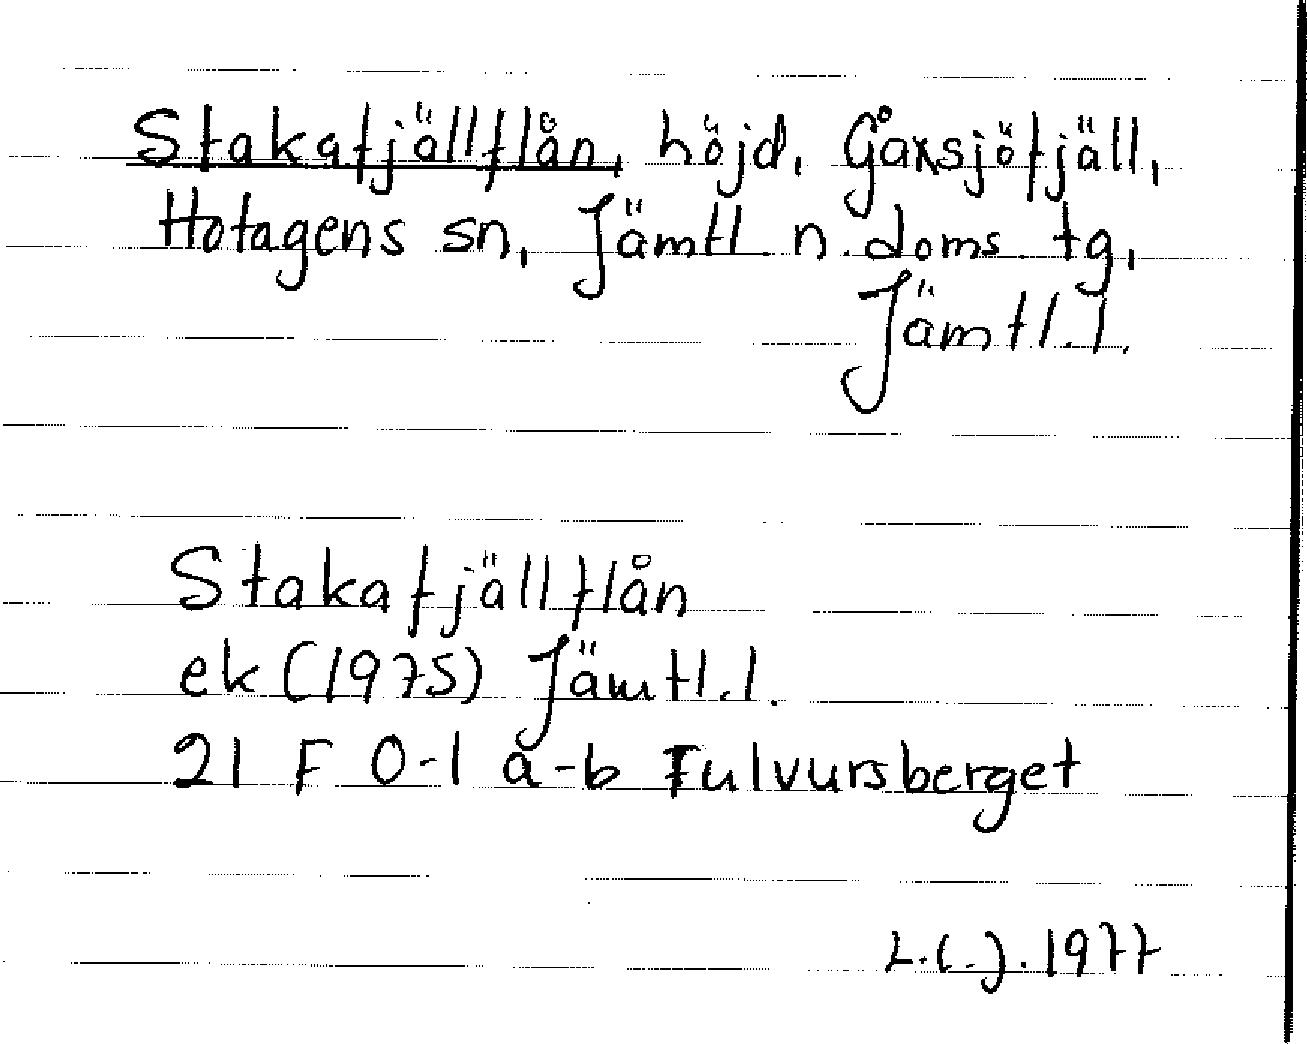 Stakafjällflån, höjd, Gåxsjöfjäll,
Hotagens sn, Jämtl n. doms. tg,
Jämtl. l.
Stakafjällflån
ek (1975) Jämtl. l.
21 F 0-1 a-b Fulvursberget
L.C.J. 1977